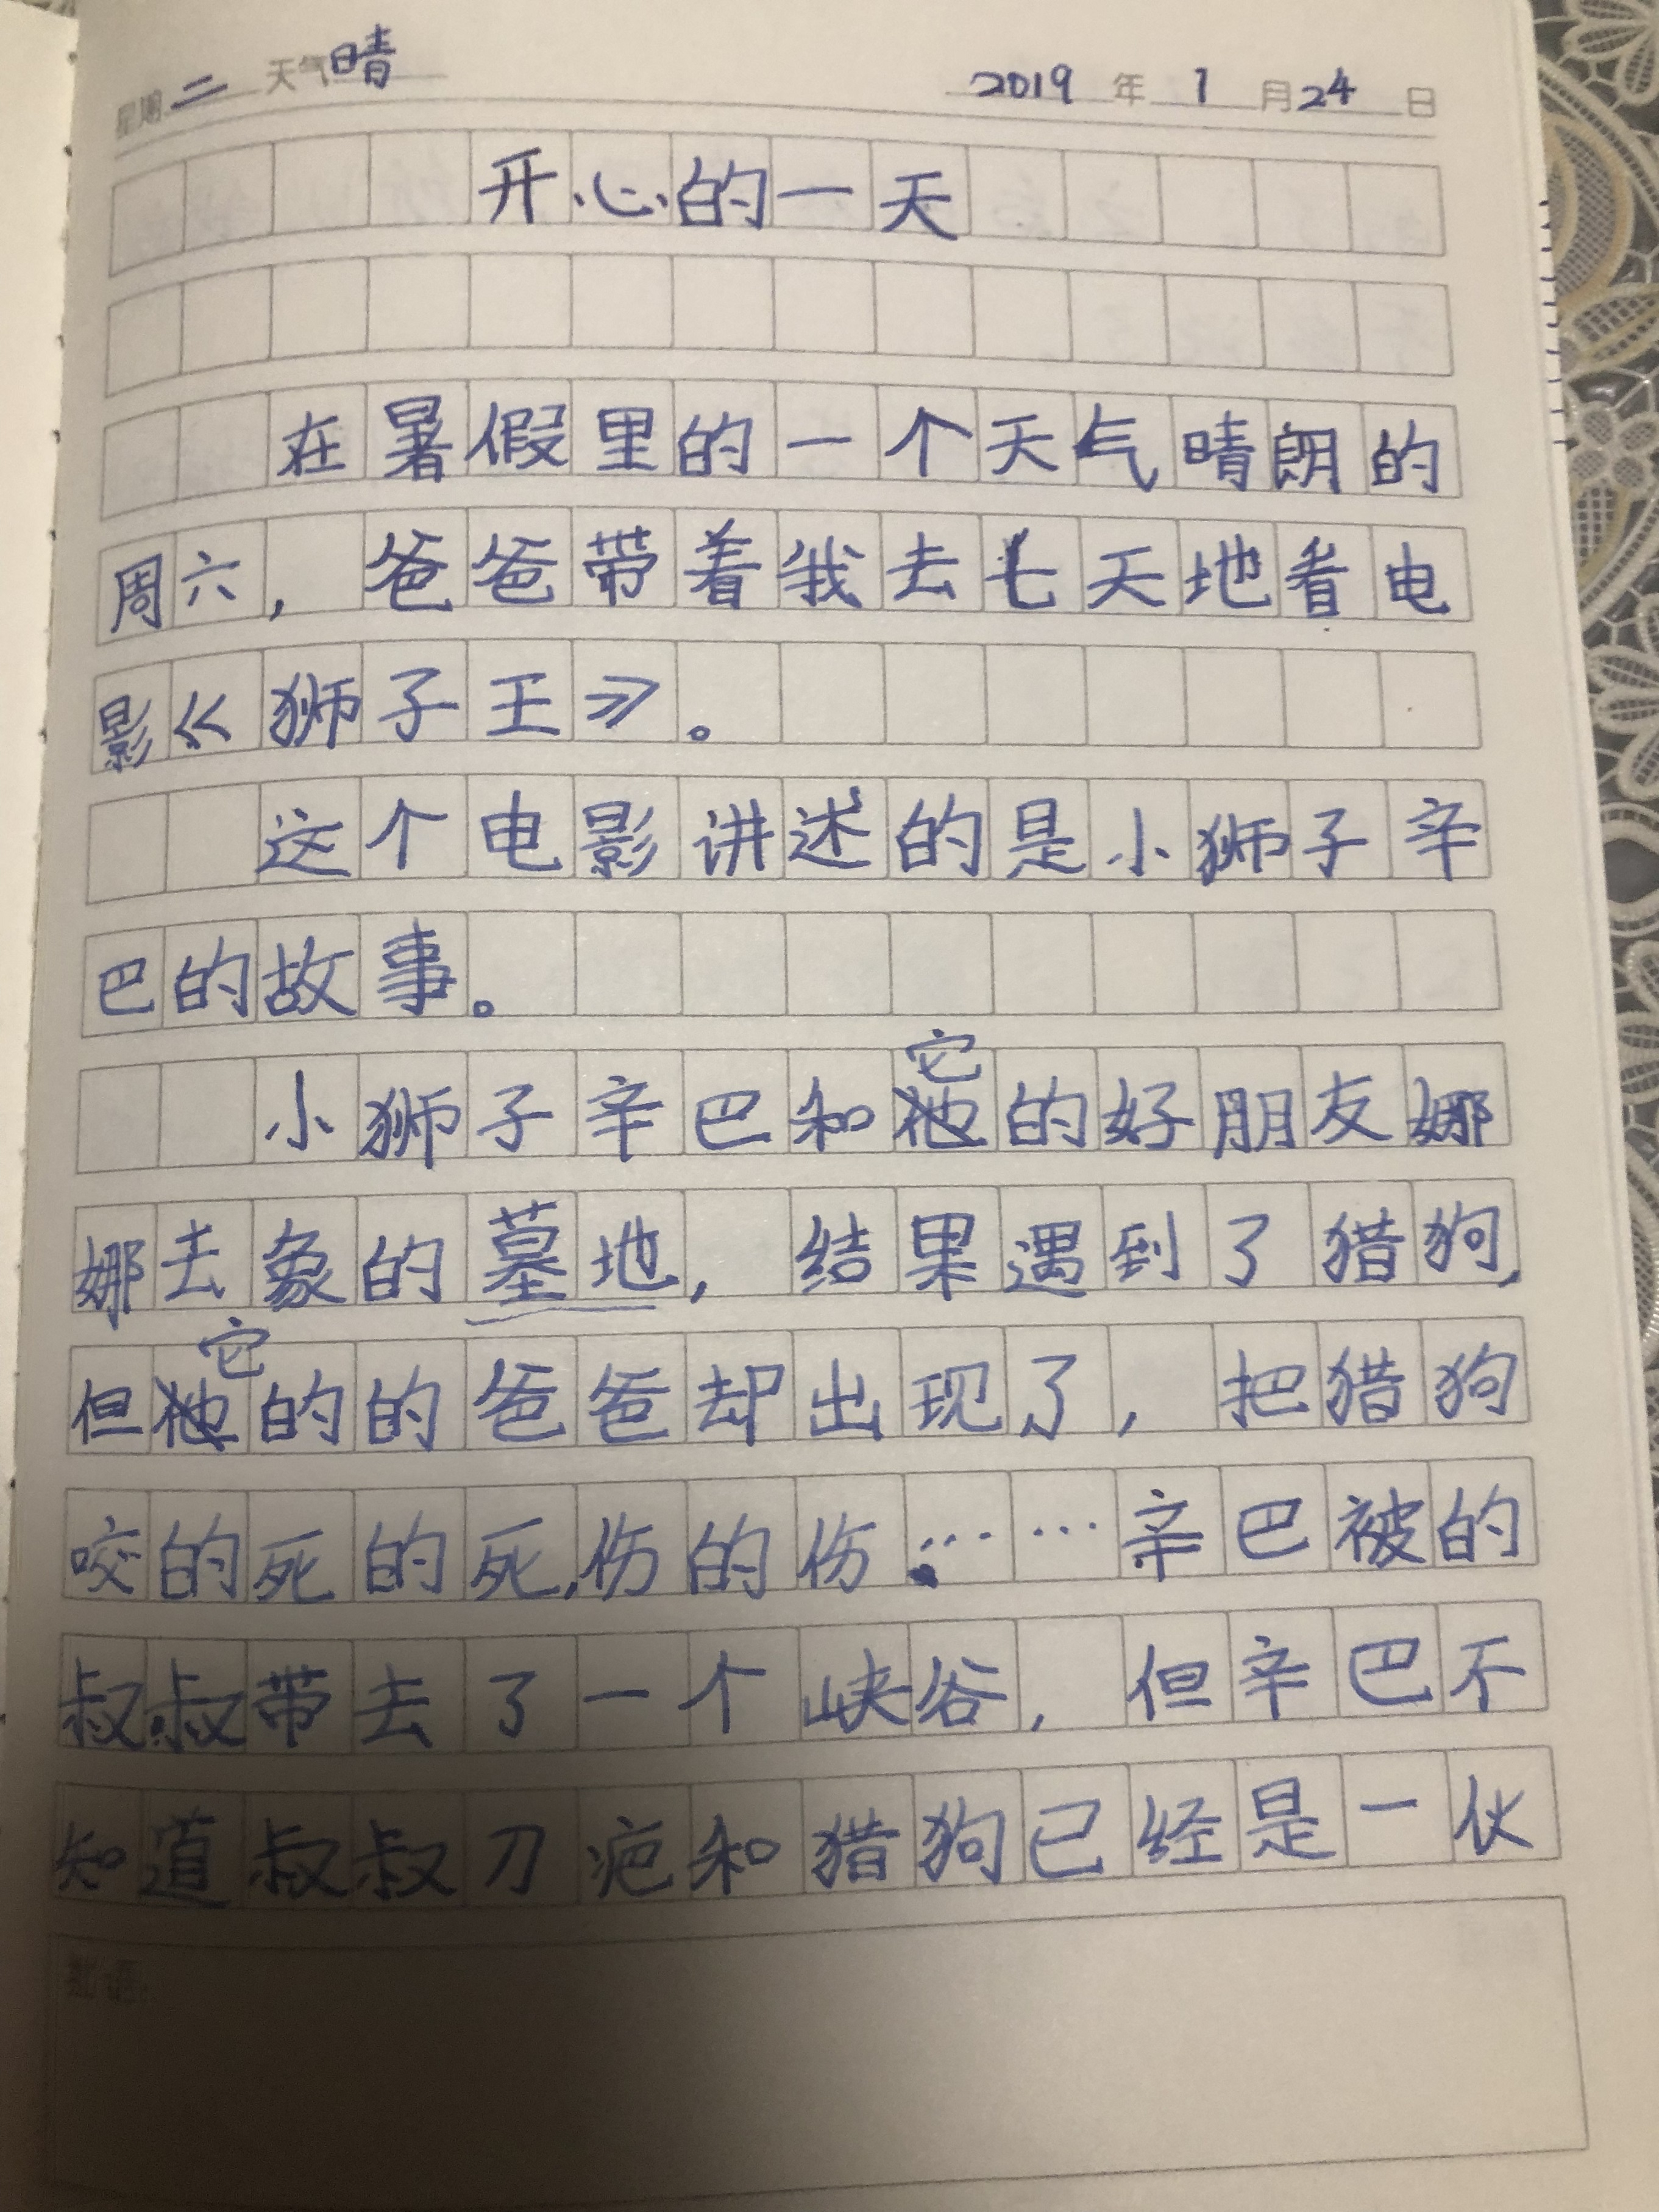 星期二 天气晴 2019年1月24日
开心的一天
在暑假里的一个天气晴朗的
周六，爸爸带着我去七天地看电
影《狮子王》。
这个电影讲述的是小狮子辛
巴的故事。
小狮子辛巴和它的好朋友娜
娜去象的墓地，结果遇到了猎狗，
但它的的爸爸却出现了，把猎狗
咬的死的死，伤的伤……辛巴被的
叔叔带去了一个峡谷，但辛巴不
知道叔叔刀疤和猎狗已经是一伙
批语: